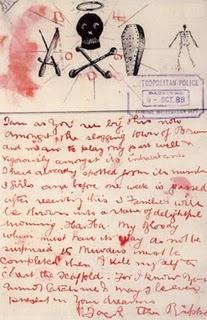 TROPOLITAN POLICE
OCT. 88
I am as you see by this now
amongst the slogging town of Brum
and mean to play my part well &
vigorously amongst its inhabitants
I have already spotted from its
3 girls and before one week is passed
after receiving this 3 Families will
be thrown into a state of delightful
mourning. Ha. Ha. My Bloody
whim must have its way do not be
surprised 15 Murders must be
completed then I kill myself to
cheat the scaffold. For I know you
cannot catch me & may I be even
present in your dreams
Jack the Ripper